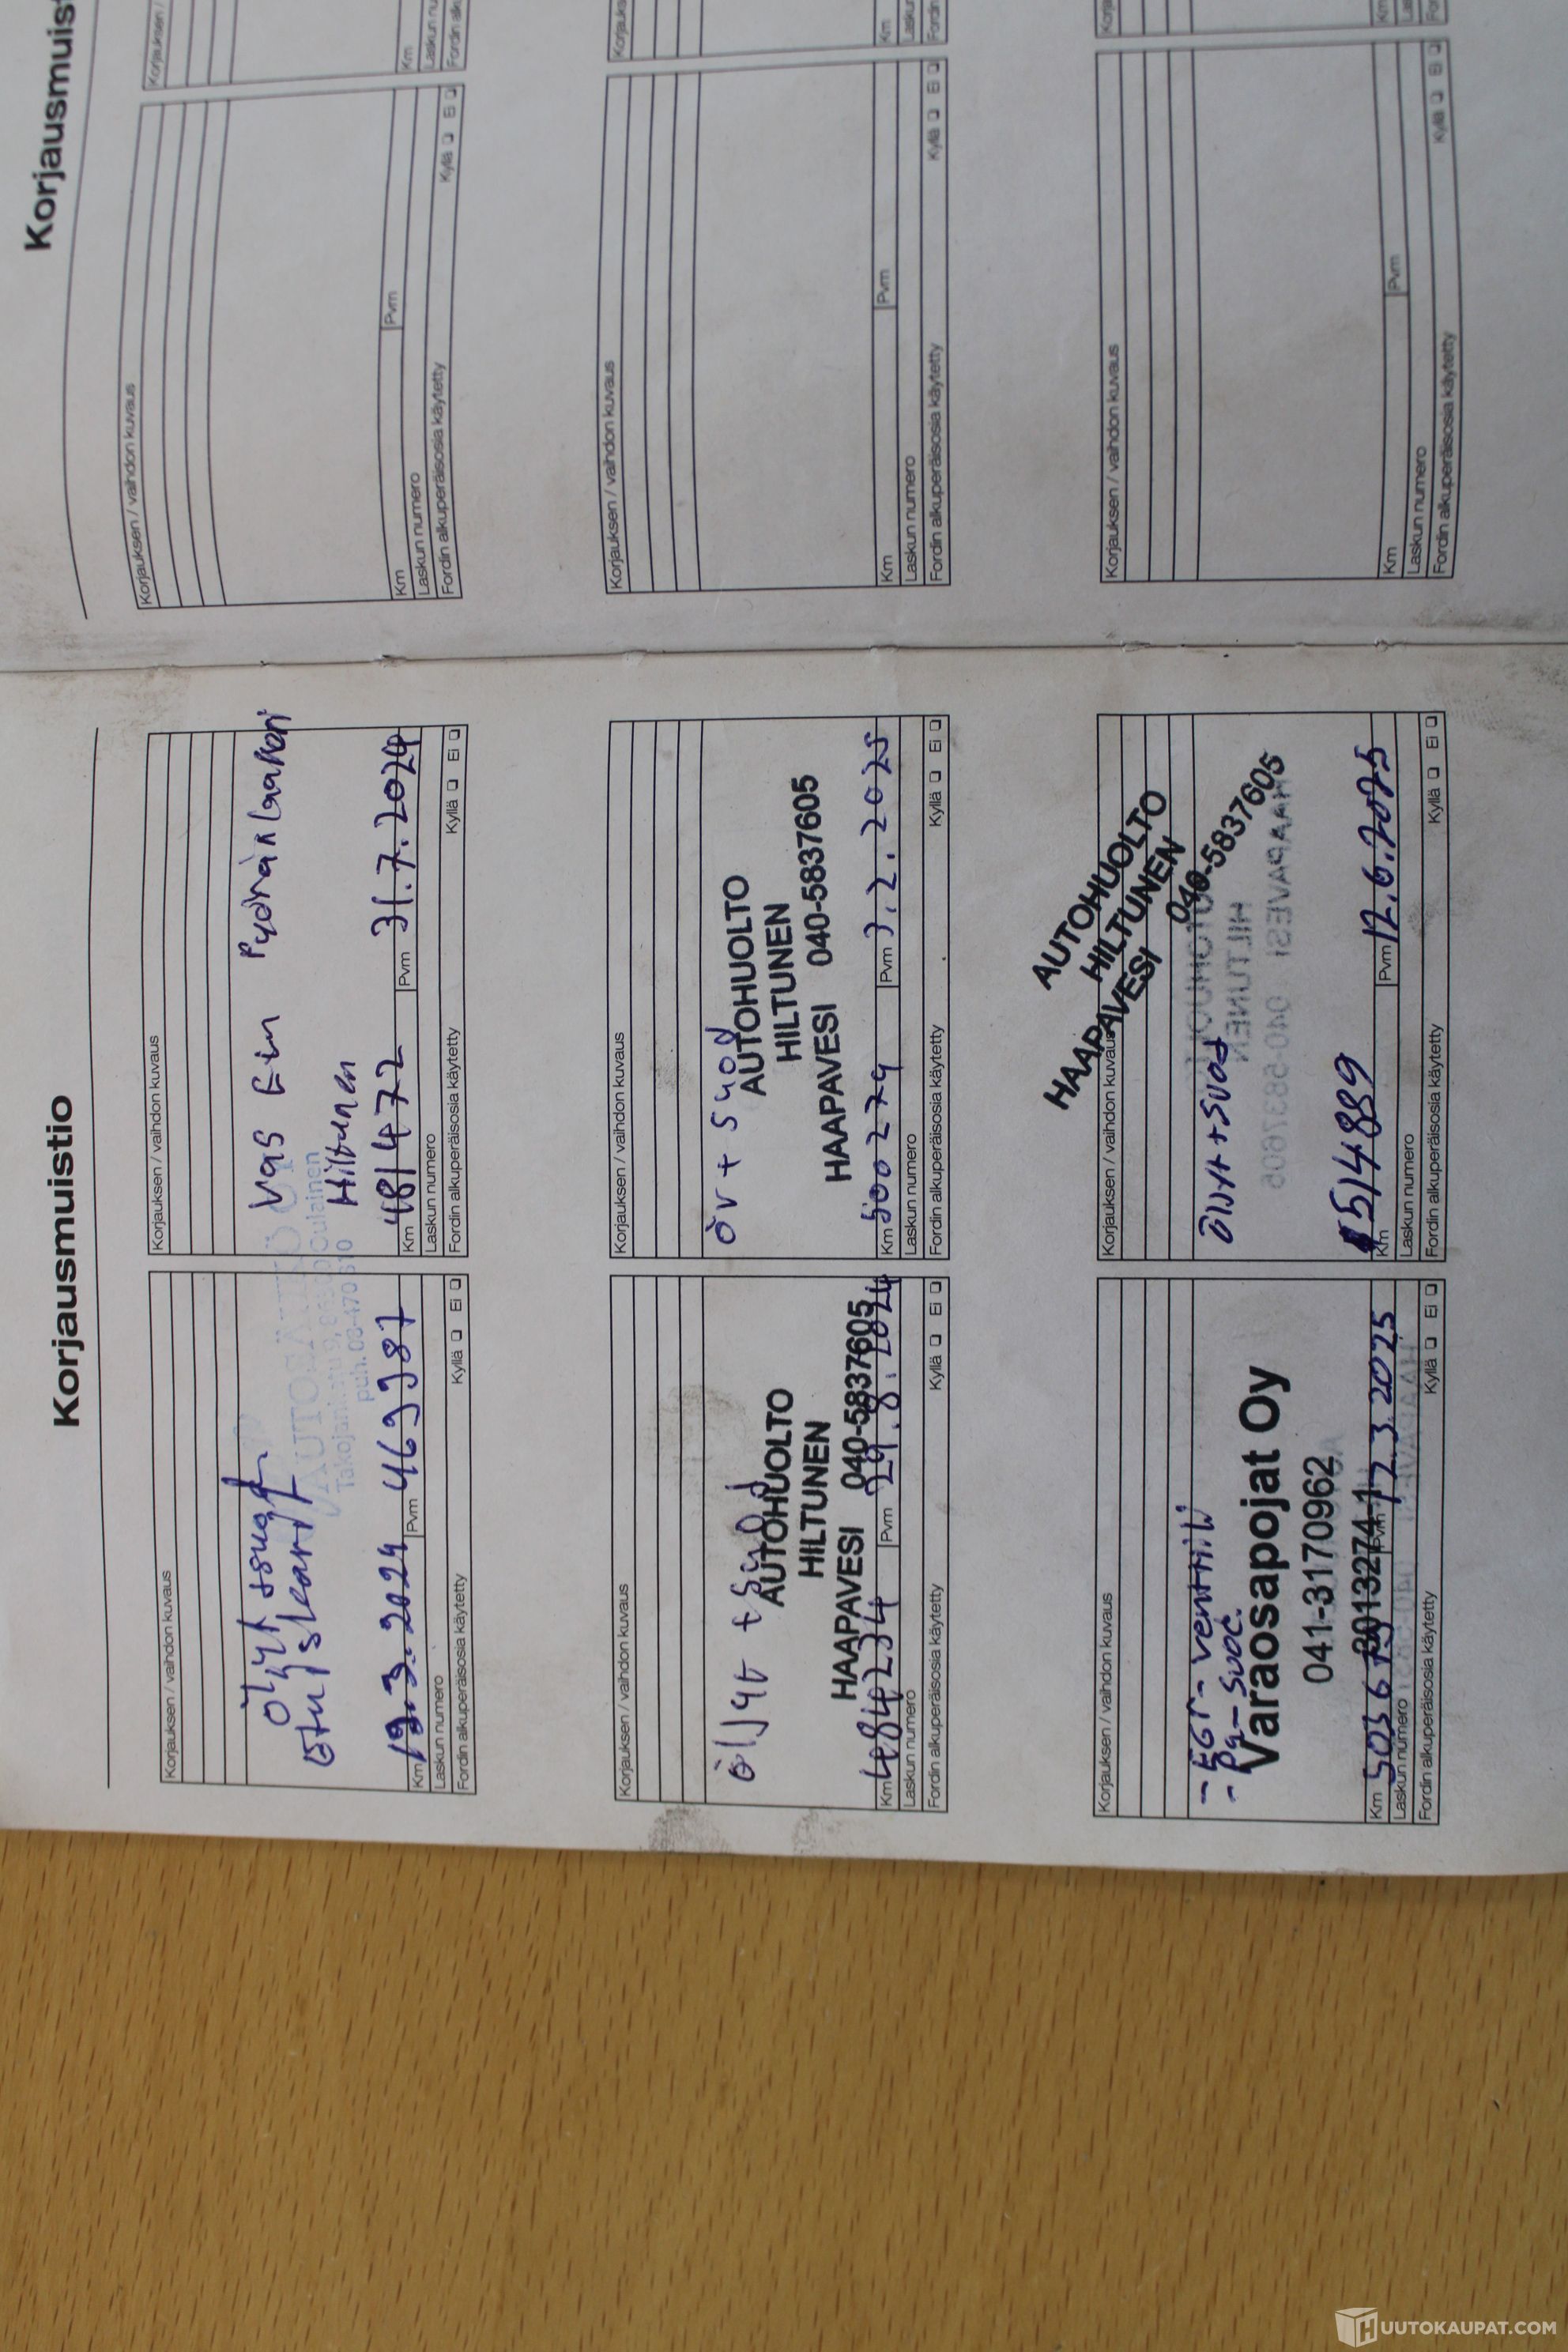 Korjausmuistio
Korjauksen / vaihdon kuvaus
Öljyt +suod.
Etu iskarit
19.3.2024
469987
Km
Pvm
Laskun numero
Fordin alkuperäisosia käytetty
Kyllä
Ei
Korjauksen / vaihdon kuvaus
Vas Etu Pyöränlaakeri
Hiltunen
Km 481472
Pvm 31.7.2024
Laskun numero
Fordin alkuperäisosia käytetty
Kyllä
Ei
Korjauksen / vaihdon kuvaus
Öljyt + Suod
AUTOHUOLTO
HILTUNEN
HAAPAVESI 040-5837605
Km 484234
Pvm 29.8.2024
Laskun numero
Fordin alkuperäisosia käytetty
Kyllä
Ei
Korjauksen / vaihdon kuvaus
öv + suod
AUTOHUOLTO
HILTUNEN
HAAPAVESI 040-5837605
Km 500279
Pvm 3.2.2025
Laskun numero
Fordin alkuperäisosia käytetty
Kyllä
Ei
Korjauksen / vaihdon kuvaus
- EGR-venttiili
- Pa-Suod.
Varaosapojat Oy
041-3170962
Km
3013274-1
Pvm
.3.2025
Laskun numero
Fordin alkuperäisosia käytetty
Kyllä
Ei
Korjauksen / vaihdon kuvaus
AUTOHUOLTO
HILTUNEN
HAAPAVESI 040-5837605
Öljyt + suod
Km 514889
Pvm 12.6.2025
Laskun numero
Fordin alkuperäisosia käytetty
Kyllä
Ei
Korjausmuist
Korjauksen / vaihdon kuvaus
Km
Pvm
Laskun numero
Fordin alkuperäisosia käytetty
Kyllä
Ei
Korjauksen /
Km
Laskun nu
Fordin alk
Korjauksen / vaihdon kuvaus
Km
Pvm
Laskun numero
Fordin alkuperäisosia käytetty
Kyllä
Ei
Korjauks
Km
Laskun
Fordin
Korjauksen / vaihdon kuvaus
Km
Pvm
Laskun numero
Fordin alkuperäisosia käytetty
Kyllä
Ei
Korja
Km
Las
For
HUUTOKAUPAT.COM